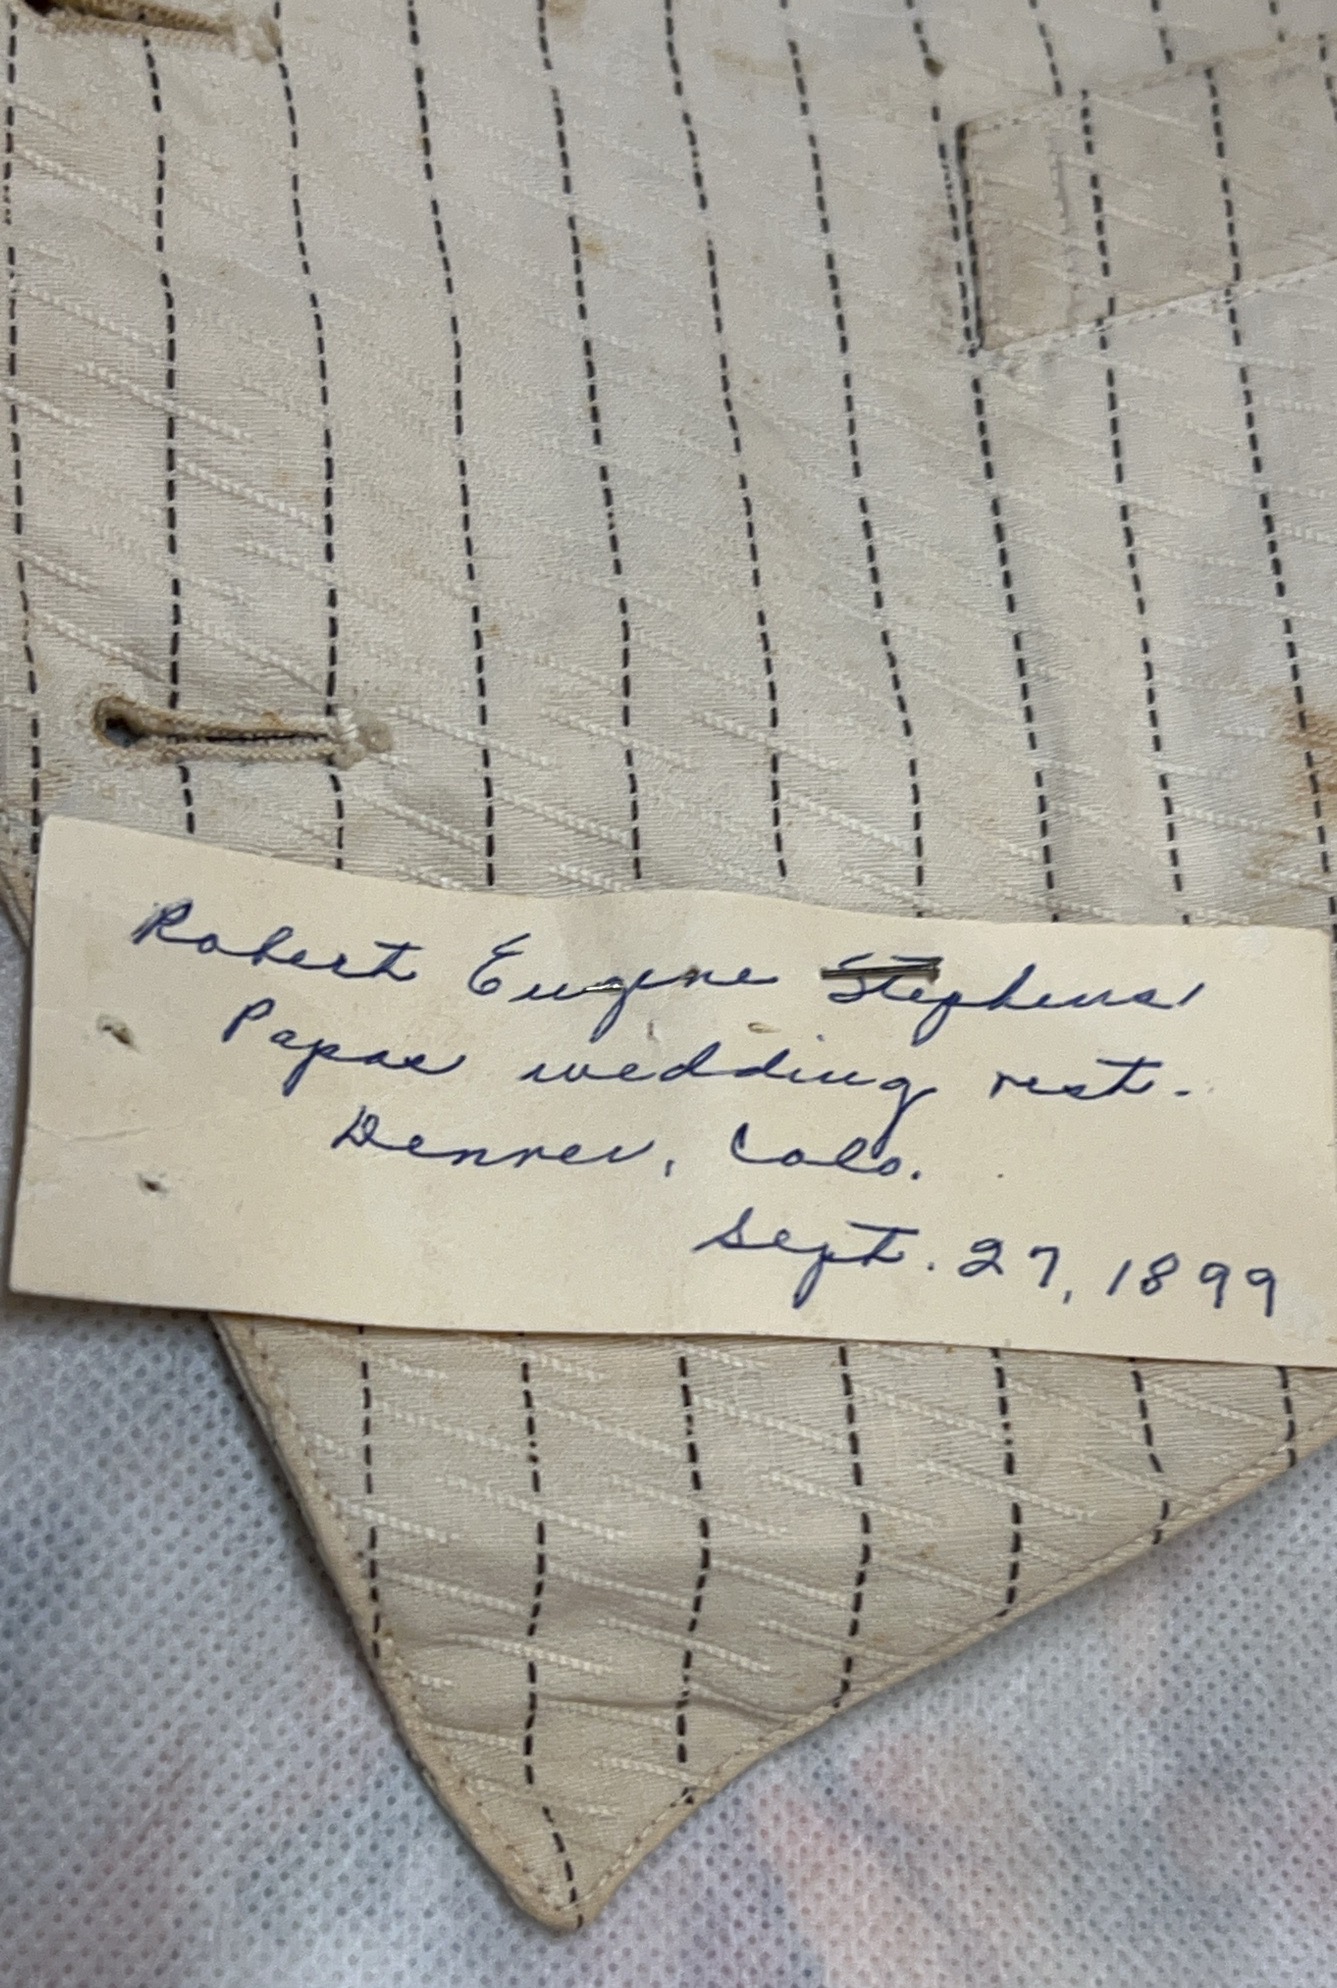 Robert Eugene Stephens'
Papas wedding vest.
Denver, Colo.
Sept. 27, 1899